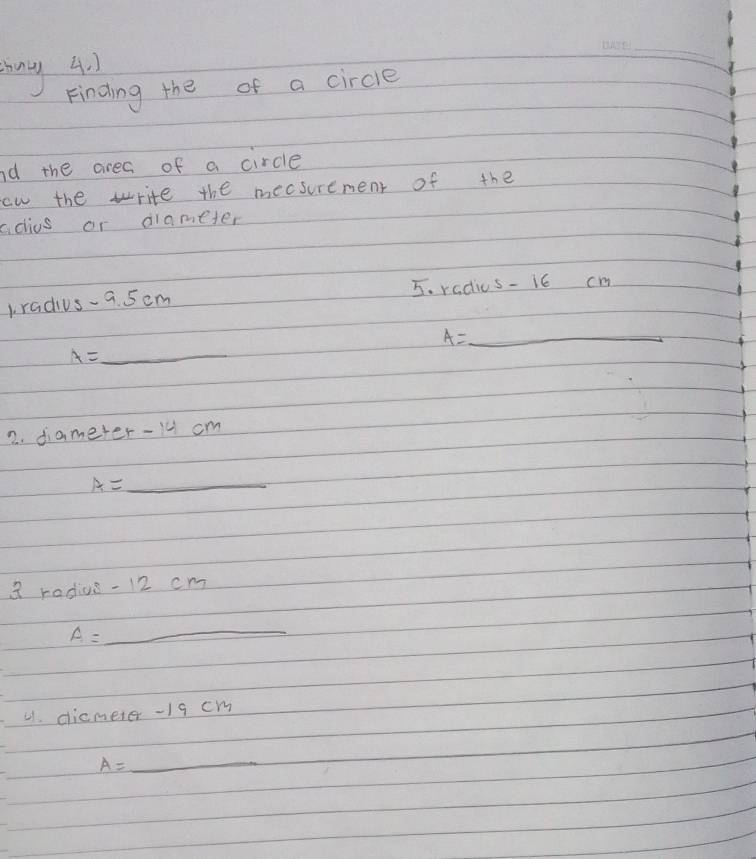 DATE:
4.)
Finding the of a circle
the area of a circle
the write the measurement of the
or diameter
1. radius - 9.5 cm
A =
5. radius - 16 cm
A =
2. diameter - 14 cm
A =
3 radius - 12 cm
A =
4. diameter - 19 cm
A =